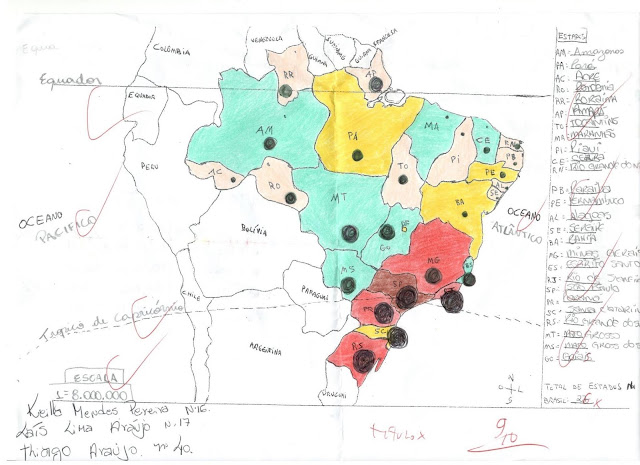 Equador
COLÔMBIA
VENEZUELA
GUIANA
SURINAME
GUIANA FRANCESA
EQUADOR
PERU
OCEANO
PACIFICO
BOLÍVIA
CHILE
PARAGUAI
ARGENTINA
URUGUAI
Tropico de capricórnio
OCEANO
ATLÂNTICO
RR
AP
AM
PA
MA
CE
RN
PB
PI
PE
AL
SE
AC
RO
TO
MT
BA
DF
GO
MG
ES
MS
SP
RJ
PR
SC
RS
N
L
S
ESCALA
1=8.000.000
Keilla Mendes Pereira N:16.
Laís Lima Araújo N.17
Thiago Araújo. nº 40.
titulo x
9/10
ESTADOS
AM- Amazonas
PA=
AC= ACRE
RO= Rondonia
RR= RORAIMA
AP= AMAPÁ
TO= TOCANTINS
MA= MARANHÃO
PI= Piaui
CE= CEARA
RN= RIO GRANDE DO N
PB= Paraiba
PE= PERNAMBUCO
AL= Alagoas
SE= SERGIPE
BA= BAHIA
MG= MINAS GERAIS
ES= ESPIRITO SANTO
RJ= RIO DE JANEIRO
SP= São Paulo
PR=
SC= Santa Catarina
RS= RIO GRANDE DO S
MT= MATO GROSSO
MS= MATO GROSSO DO S
GO= Goiás
TOTAL DE ESTADOS NO
BRASIL: 26 x